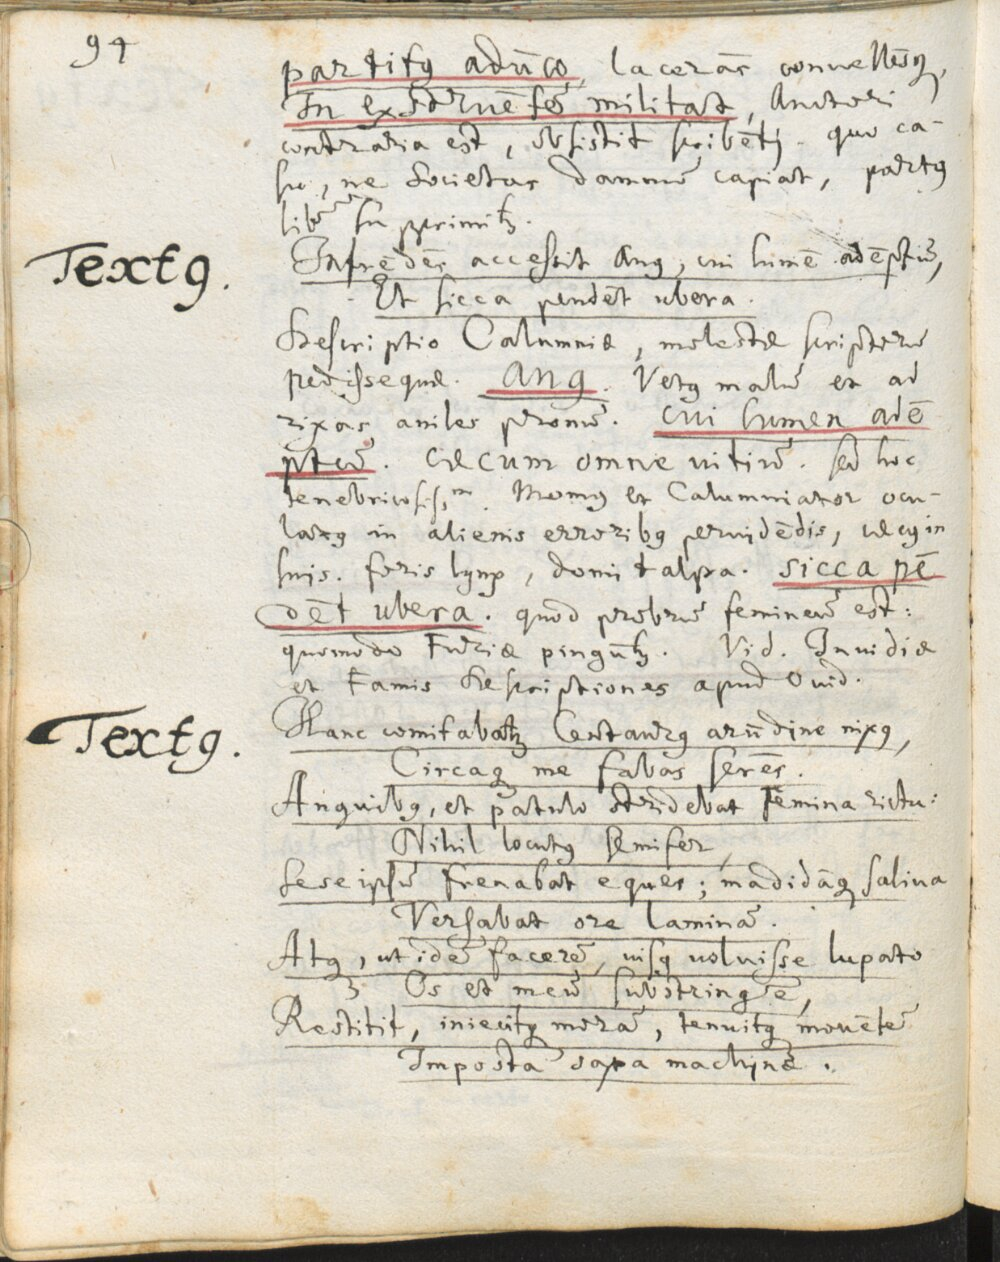 94
partitꝯ adūco, lacerās convellēsq̨,
In exstruēsē militat, Auctori
contraria est, obsistit scribētj. quo ca-
su, ne Societas damnū capiat, partꝯ
libr
Textꝯ.
accessit Anꝯ, cui lumē adēptū,
Et sicca pendēt ubera.
Descriptio Calumniæ, molestæ scriptorū
pedissequæ. Anꝯ. Vetꝯ malū et ad
rixas aniles pronū. cui lumen adē
ptū. Cæcum omne uitiū. sed hoc
tenebricosiss,m. Momꝯ et Calumniator ocu-
latꝯ in alienis erroribꝯ peruidēdis, cæcꝯ in
suis. foris lynx, domi talpa. sicca pē
dēt ubera. quod probrū femineū est:
quomodo Furiæ pingūtꝫ. Vid. Inuidiæ
et Famis Descriptiones apud Ouid.
Textꝯ.
Hanc comitabatꝫ Centaurꝯ arūdine nixꝯ,
Circaq̨ me fabas serēs.
Anguibꝯ, et patulo stridebat femina rictu:
Nihil locutꝯ semifer,
Sese ipsū frenabat eques; madidāq̨ saliua
Versabat ore laminā.
Atq̨, ut idē facerē, uisꝯ uoluisse lupato
Os et meū substringere,
Restitit, iniecitq̨ morā, tenuitq̨ mouētē
Imposta saxa machinæ.